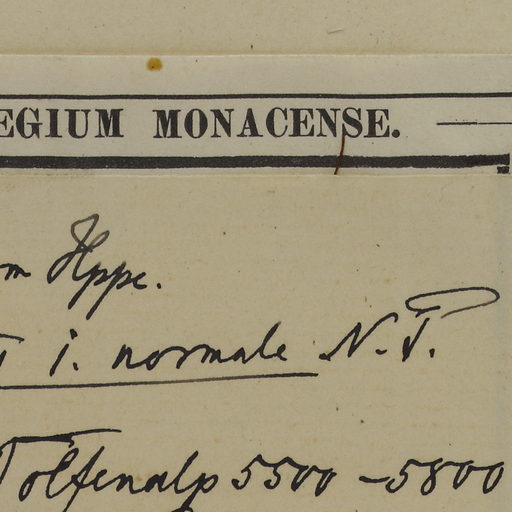 EGIUM MONACENSE.
m Hppe.
i. normale N.T.
5500 – 5800